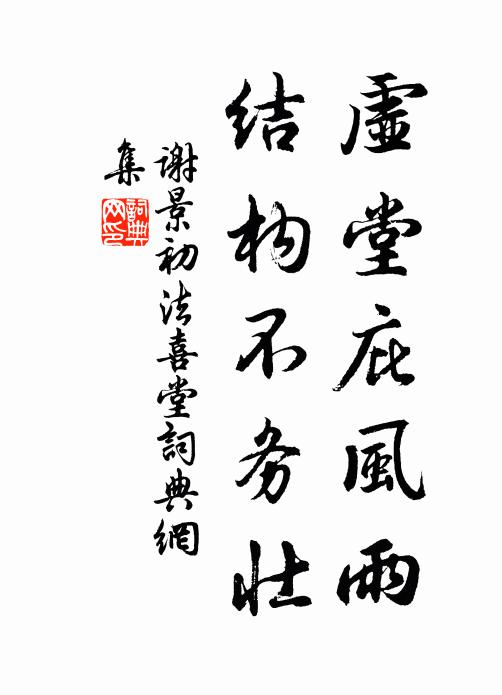 虛堂庇風雨
结构不务壮
謝景初法喜堂詞典網
集
詞典网印